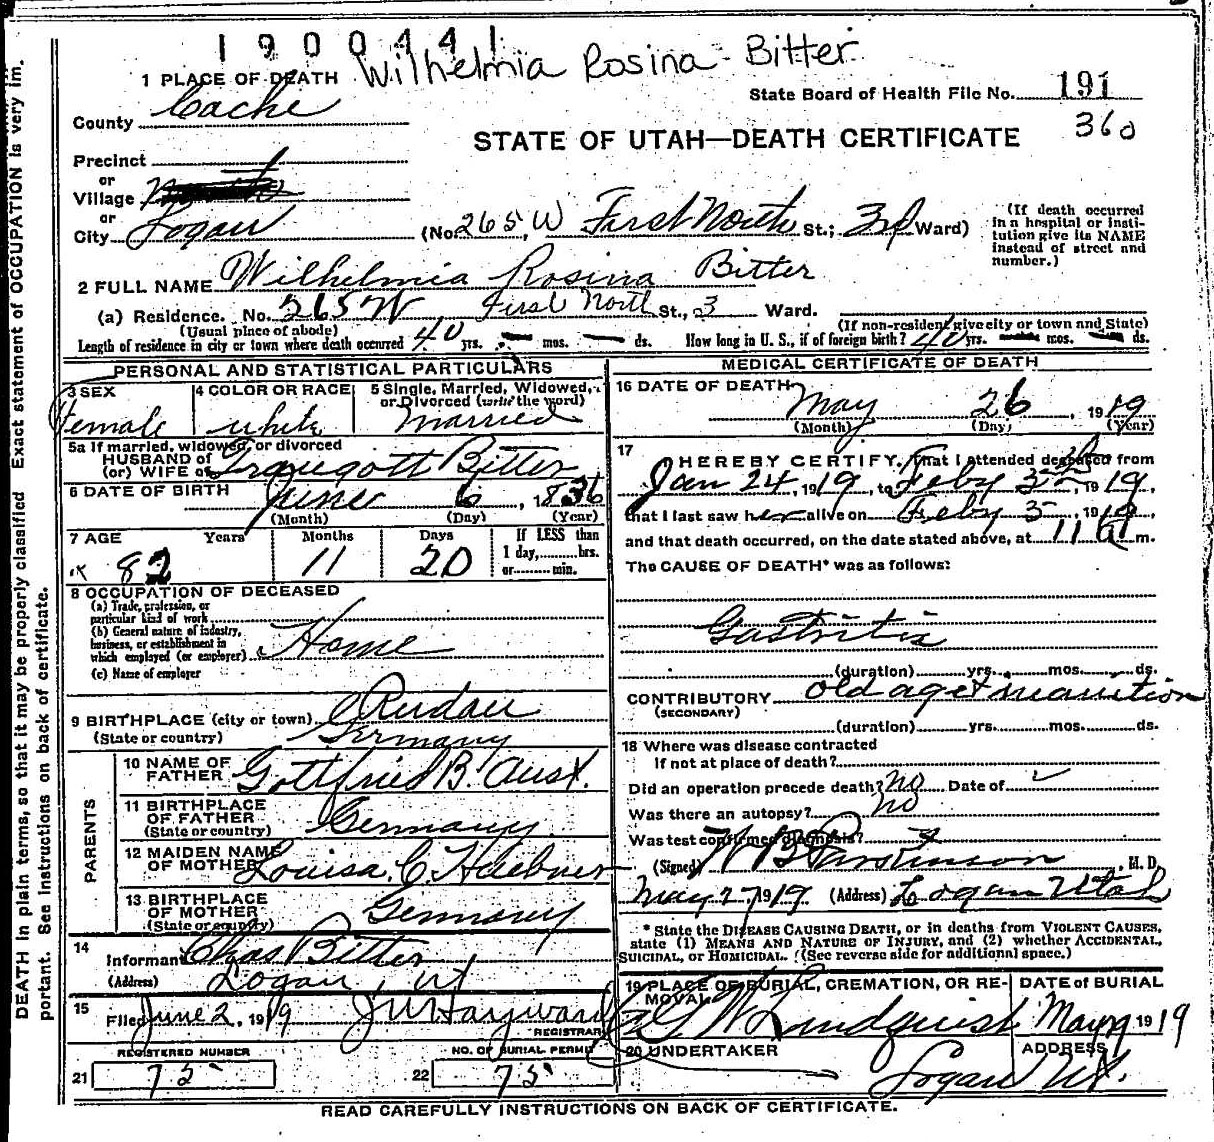 1900441
Wilhelmia Rosina Bitter
1 PLACE OF DEATH
State Board of Health File No. 191
360
County Cache
STATE OF UTAH—DEATH CERTIFICATE
Precinct
or
Village
or
City Logan (No. 265 W First North St.; 3rd Ward)
(If death occurred in a hospital or institution give its NAME instead of street and number.)
2 FULL NAME Wilhelmia Rosina Bitter
(a) Residence. No. 265 W First North St., 3 Ward.
(Usual place of abode) (If non-resident give city or town and State)
Length of residence in city or town where death occurred 40 yrs. — mos. — ds. How long in U. S., if of foreign birth? 40 yrs. — mos. — ds.
PERSONAL AND STATISTICAL PARTICULARS
3 SEX Female
4 COLOR OR RACE white
5 Single, Married, Widowed, or Divorced (write the word) married
5a If married, widowed, or divorced
HUSBAND of
(or) WIFE of Traugott Bitter
6 DATE OF BIRTH June 6, 1836
(Month) (Day) (Year)
7 AGE Years Months Days If LESS than 1 day, hrs. or min.
82 11 20
8 OCCUPATION OF DECEASED
(a) Trade, profession, or particular kind of work
(b) General nature of industry, business, or establishment in which employed (or employer) Home
(c) Name of employer
9 BIRTHPLACE (city or town) Rudau
(State or country) Germany
PARENTS
10 NAME OF FATHER Gottfried B. Aust.
11 BIRTHPLACE OF FATHER (State or country) Germany
12 MAIDEN NAME OF MOTHER Louisa. C. Huebner
13 BIRTHPLACE OF MOTHER (State or country) Germany
14 Informant Chas Bitter
(Address) Logan, Ut
15 Filed June 2, 1919 J W Hayward
REGISTRAR
REGISTERED NUMBER NO. OF BURIAL PERMIT
21 75 22 75
MEDICAL CERTIFICATE OF DEATH
16 DATE OF DEATH May 26, 1919
(Month) (Day) (Year)
17 I HEREBY CERTIFY, That I attended deceased from
Jan 24, 1919, to Feby 3, 1919,
that I last saw her alive on Feby 3, 1919,
and that death occurred, on the date stated above, at 11 a m.
The CAUSE OF DEATH* was as follows:
Gastritis
(duration) yrs. mos. ds.
CONTRIBUTORY old age & inanition
(SECONDARY)
(duration) yrs. mos. ds.
18 Where was disease contracted
If not at place of death?
Did an operation precede death? no Date of
Was there an autopsy? no
Was test confirmed diagnosis?
(Signed) W B Parkinson M. D.
May 27 1919 (Address) Logan Utah
* State the DISEASE CAUSING DEATH, or in deaths from VIOLENT CAUSES,
state (1) MEANS AND NATURE OF INJURY, and (2) whether ACCIDENTAL,
SUICIDAL, or HOMICIDAL. (See reverse side for additional space.)
19 PLACE OF BURIAL, CREMATION, OR REMOVAL DATE of BURIAL
G W Lindquist May 1919
20 UNDERTAKER ADDRESS
Logan Ut.
READ CAREFULLY INSTRUCTIONS ON BACK OF CERTIFICATE.
DEATH in plain terms, so that it may be properly classified Exact statement of OCCUPATION is very im-
portant. See instructions on back of certificate.